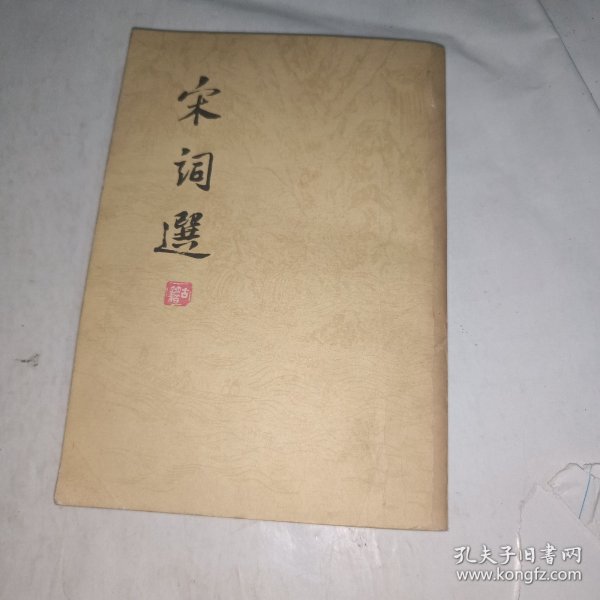 宋詞選
孔夫子旧書网
www.kongfz.com